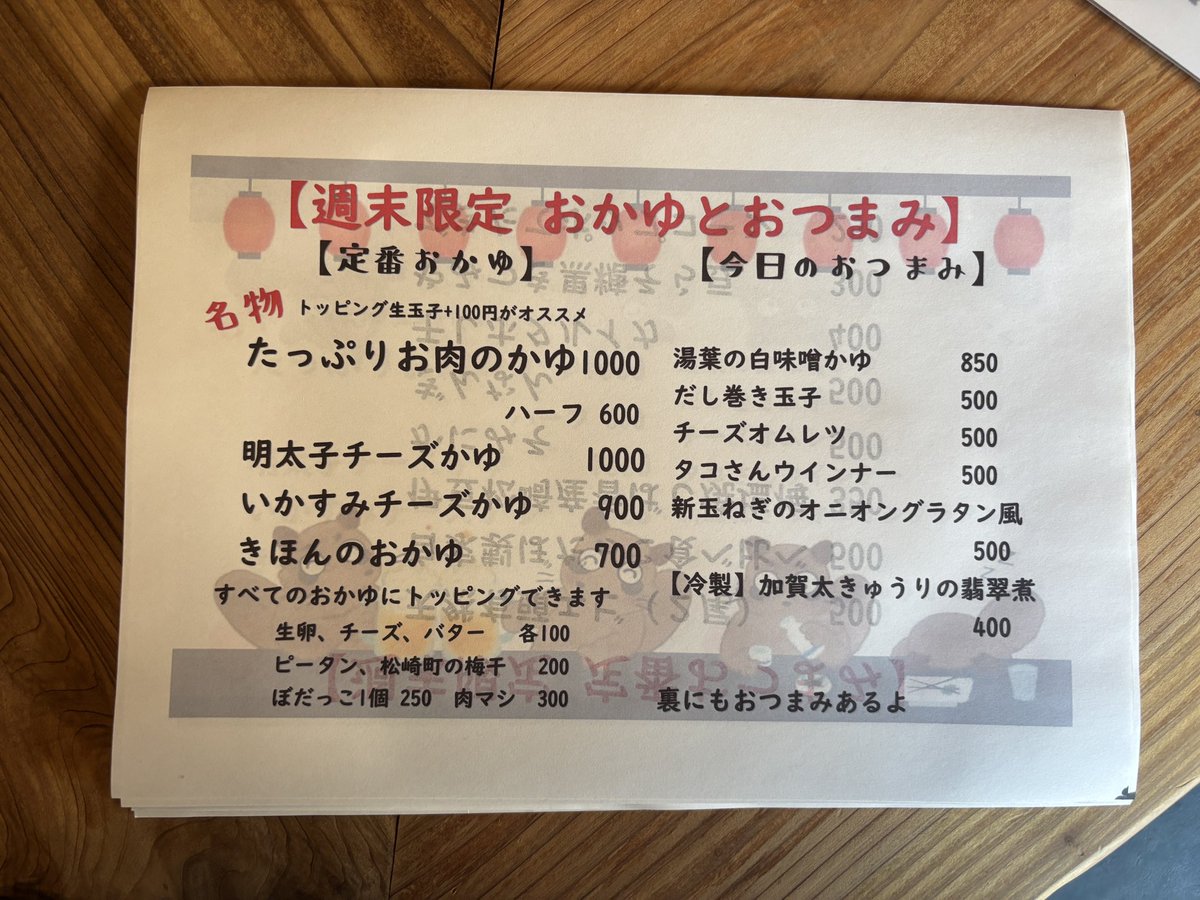 【週末限定 おかゆとおつまみ】
【定番おかゆ】
名物 トッピング生玉子+100円がオススメ
たっぷりお肉のかゆ1000
ハーフ 600
明太子チーズかゆ 1000
いかすみチーズかゆ 900
きほんのおかゆ 700
すべてのおかゆにトッピングできます
生卵、チーズ、バター 各100
ピータン、松崎町の梅干 200
ぼだっこ1個 250 肉マシ 300
【今日のおつまみ】
湯葉の白味噌かゆ 850
だし巻き玉子 500
チーズオムレツ 500
タコさんウインナー 500
新玉ねぎのオニオングラタン風
500
【冷製】加賀太きゅうりの翡翠煮
400
裏にもおつまみあるよ